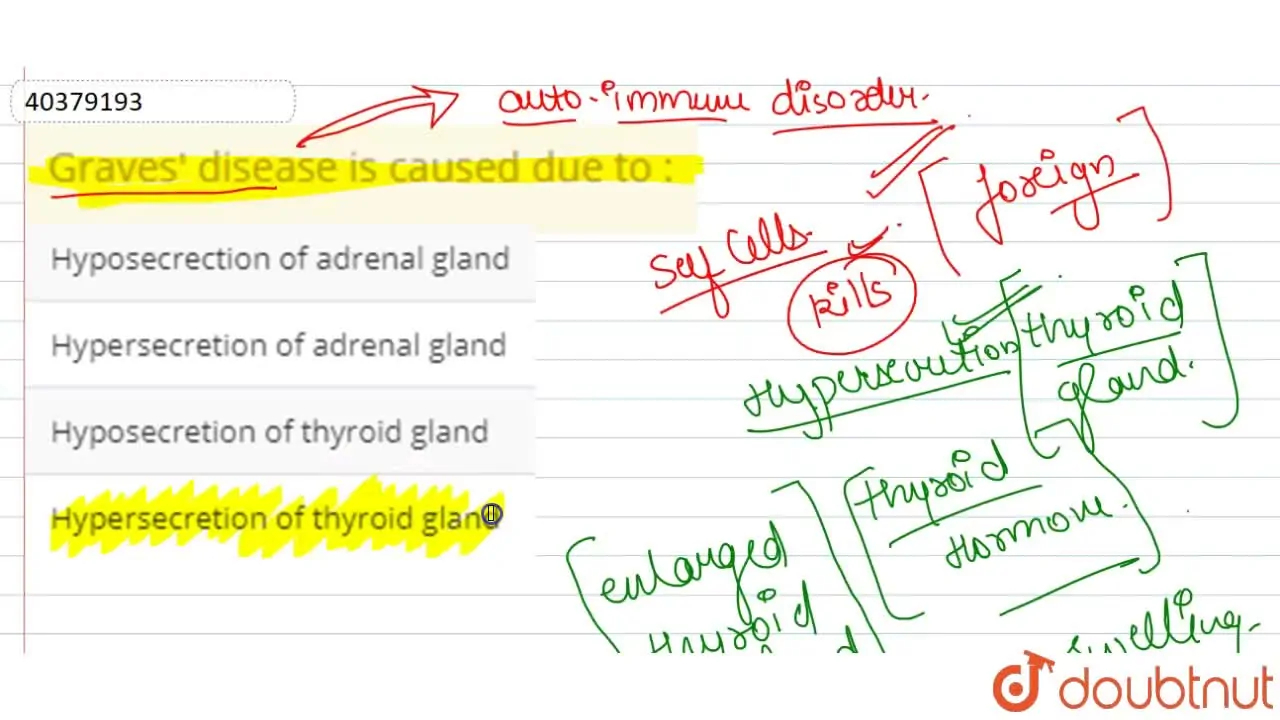 40379193
auto-immune disorder.
Graves' disease is caused due to :
[foreign]
Self Cells.
kills
Hyposecrection of adrenal gland
Hypersecretion of adrenal gland
Hyposecretion of thyroid gland
Hypersecretion of thyroid gland
Hypersecretion [thyroid
gland.]
[thyroid
Hormone.]
[enlarged
thyroid
swelling.
doubtnut